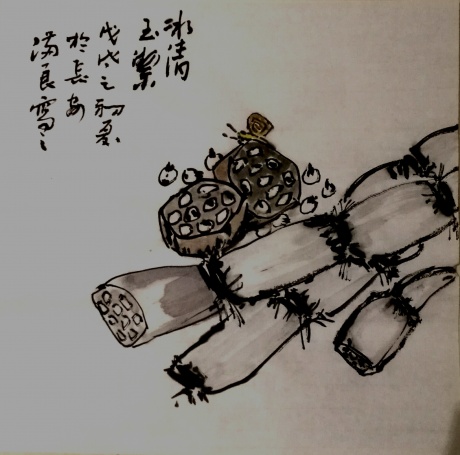 冰清
玉潔
戊戌之初夏
於長安
滿良寫之